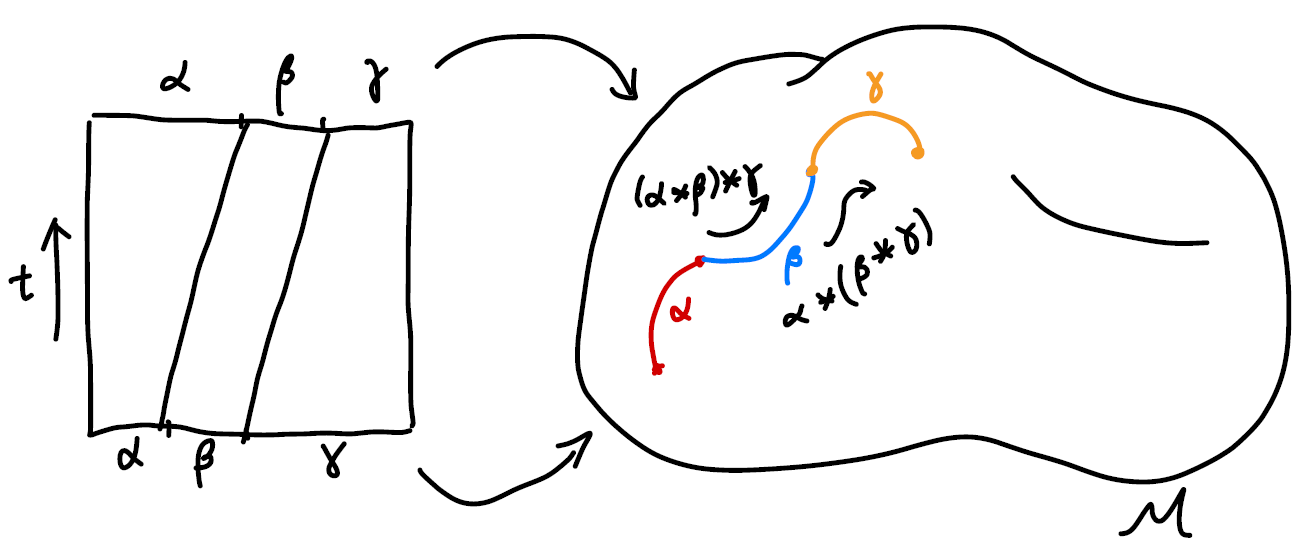 α β γ
t
α β γ
γ
(α*β)*γ
β
α*(β*γ)
α
M